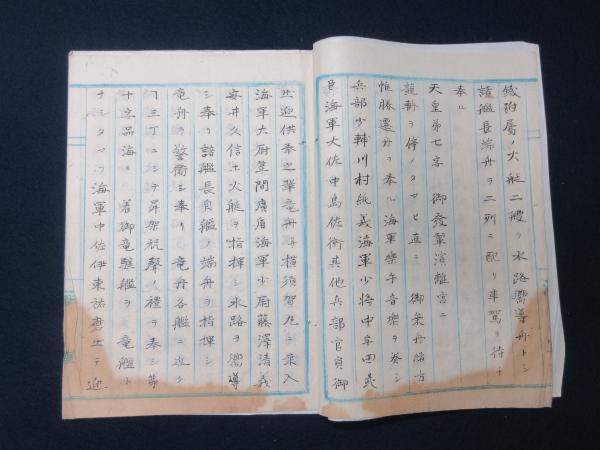 鐵附屬ノ火艇二艘ヲ水路嚮導舟トシ
諸艦長端舟ヲ二列ニ配リ車駕ヲ待チ
奉ル
天皇第七字 御發輦濱離宮ニ
龍軒ヲ停メタマヒ直ニ 御乗舟縮方
惟勝還舟ヲ奉ル海軍樂午音樂ヲ發シ
兵部少輔川村純義海軍少将中牟田武
海軍大佐中島佐衡其他兵部官員御
出迎供奉之輩竜舟并横須賀丸ニ乗入
海軍大尉笠間廣盾海軍少尉藤澤清義
安井久信ホ火艇ヲ指揮シ水路ヲ嚮導
シ奉リ諸艦長員艦ノ端舟ヲ指揮シ
竜舟ヲ警衛シ奉リ竜舟各艦ニ近ク
丁ニシテ昇架祝聲ノ禮ヲ奏シ第
十字品海ニ着御竜驤艦ヲ 竜艦ト
ナシタマフ海軍中佐伊東祐麿出テ迎